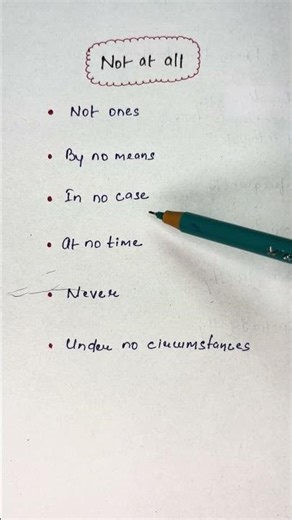 Not at all
Not ones
By no means
In no case
At no time
Never
Under no circumstances